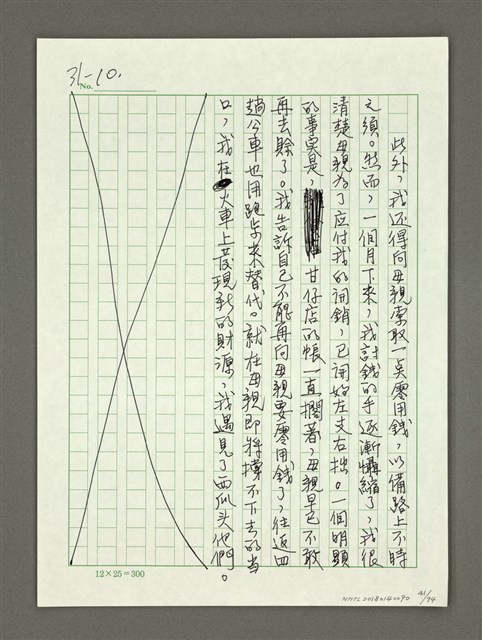 31-10.
No.
此外，我还得向母親索取一奌零用錢，以備路上不時
之須。然而，一個月下来，我討錢的手逐漸懾縮了，我很
清楚母親为了应付我的開銷，已開始左支右拙。一個明顯
的事实是，甘仔店的帳一直擱著，母親早已不敢
再去賒了。我告訴自己不能再向母親要零用錢了，往返四
趟公車也用跑步来替代。就在母親即将撑不下去的当
口，我在火車上發現新的財源，我遇見了西瓜头他們。
12×25=300
NMTL20180140090
41/74